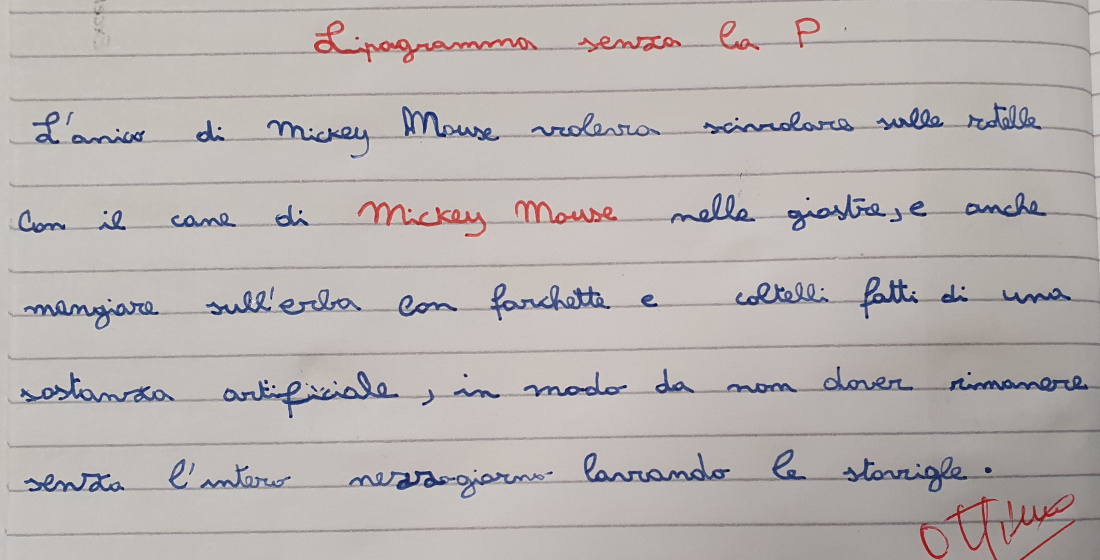 Lipagramma senza la P
L'amico di Mickey Mouse voleva scivolare sulle rotelle
con il cane di Mickey Mouse nelle giostre, e anche
mangiare sull'erba con forchette e coltelli fatti di una
sostanza artificiale, in modo da non dover rimanere
senza l'intero mezzogiorno lavando le stovigle.
Ottimo